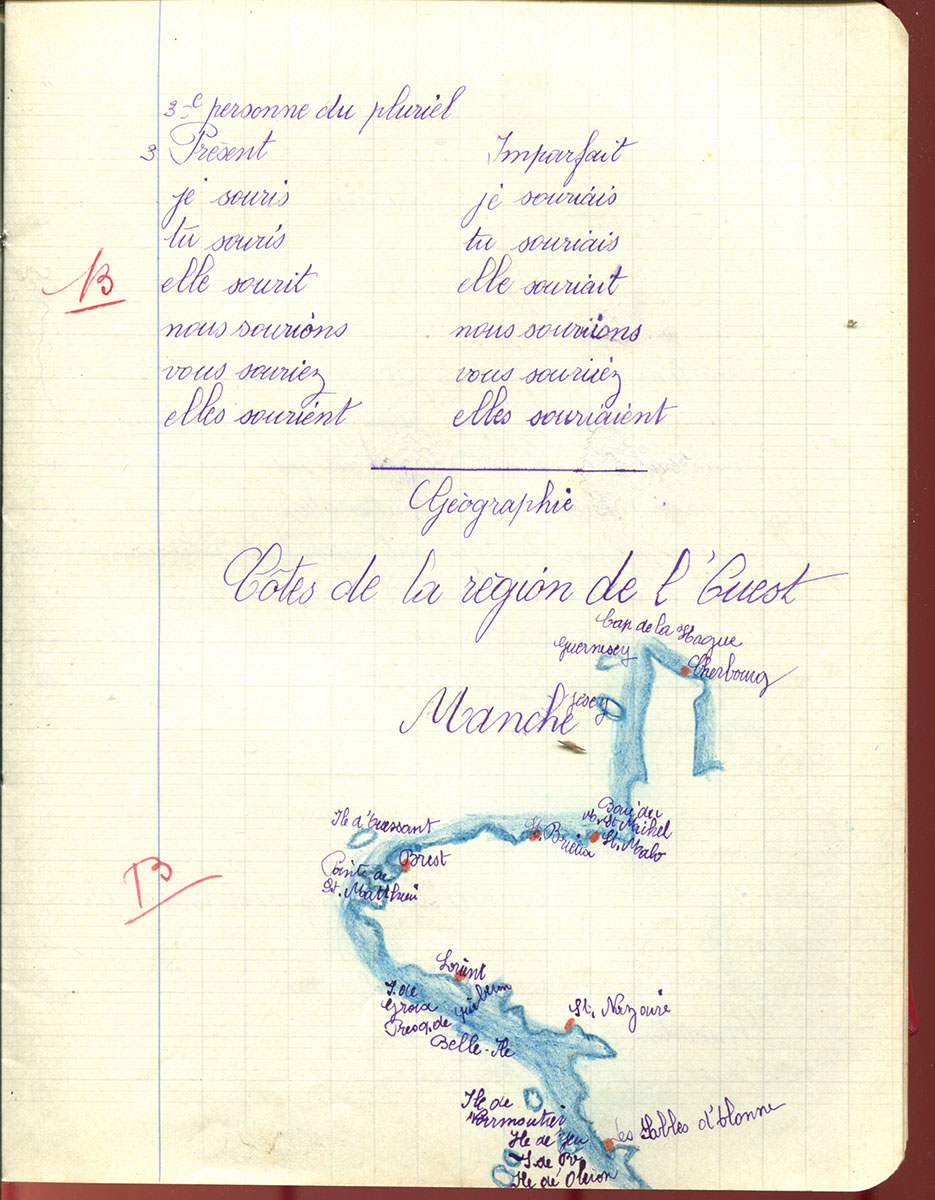 3e personne du pluriel
3 Présent
Imparfait
je souris
je souriais
tu souris
tu souriais
elle sourit
elle souriait
B
nous sourions
nous souriions
vous souriez
vous souriiez
elles sourient
elles souriaient
Géographie
Côtes de la région de l'Ouest
Cap de la Hague
Guernesey
Cherbourg
Jesey
Manche
Baie du
M. St Michel
Ile d'Ouessant
St. Brieuc
St. Malo
Brest
Pointe de
St. Matthieu
TB
Lorient
I. de
Groix
Quiberon
Presq. de
Belle-Ile
St. Nazaire
Ile de
Noirmoutier
Ile de Yeu
les Sables d'Olonne
I. de Ré
Ile de Oléron